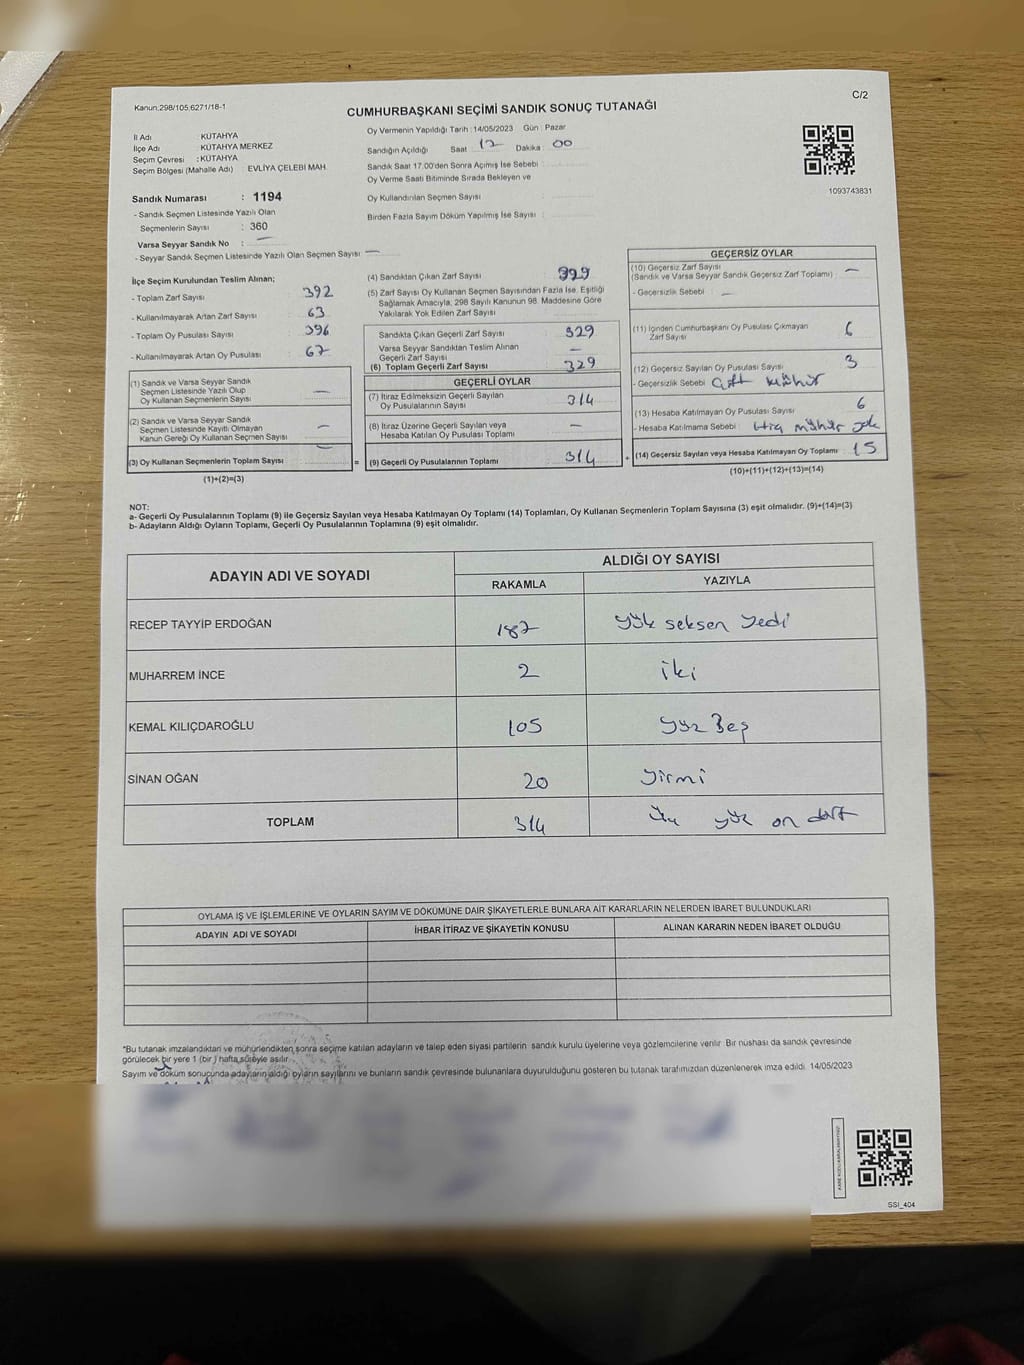 Kanun:298/105,6271/18-1
C/2
CUMHURBAŞKANI SEÇİMİ SANDIK SONUÇ TUTANAĞI
İl Adı KÜTAHYA
İlçe Adı KÜTAHYA MERKEZ
Seçim Çevresi : KÜTAHYA
Seçim Bölgesi (Mahalle Adı) EVLİYA ÇELEBİ MAH.
Sandık Numarası : 1194
- Sandık Seçmen Listesinde Yazılı Olan
Seçmenlerin Sayısı : 360
Varsa Seyyar Sandık No : —
- Seyyar Sandık Seçmen Listesinde Yazılı Olan Seçmen Sayısı —
Oy Vermenin Yapıldığı Tarih : 14/05/2023 Gün : Pazar
Sandığın Açıldığı Saat 17 Dakika : 00
Sandık Saat 17.00'den Sonra Açımış İse Sebebi :
Oy Verme Saati Bitiminde Sırada Bekleyen ve
Oy Kullandırılan Seçmen Sayısı :
Birden Fazla Sayım Döküm Yapılmış İse Sayısı :
1093743831
İlçe Seçim Kurulundan Teslim Alınan;
- Toplam Zarf Sayısı : 392
- Kullanılmayarak Artan Zarf Sayısı : 63
- Toplam Oy Pusulası Sayısı : 396
- Kullanılmayarak Artan Oy Pusulası : 67
(1) Sandık ve Varsa Seyyar Sandık
Seçmen Listesinde Yazılı Olup
Oy Kullanan Seçmenlerin Sayısı : —
(2) Sandık ve Varsa Seyyar Sandık
Seçmen Listesinde Kayıtlı Olmayan
Kanun Gereği Oy Kullanan Seçmen Sayısı : —
(3) Oy Kullanan Seçmenlerin Toplam Sayısı :
(1)+(2)=(3)
(4) Sandıktan Çıkan Zarf Sayısı : 329
(5) Zarf Sayısı Oy Kullanan Seçmen Sayısından Fazla İse, Eşitliği
Sağlamak Amacıyla, 298 Sayılı Kanunun 98. Maddesine Göre
Yakılarak Yok Edilen Zarf Sayısı :
Sandıkta Çıkan Geçerli Zarf Sayısı : 329
Varsa Seyyar Sandıktan Teslim Alınan
Geçerli Zarf Sayısı : —
(6) Toplam Geçerli Zarf Sayısı : 329
GEÇERLİ OYLAR
(7) İtiraz Edilmeksizin Geçerli Sayılan
Oy Pusulalarının Sayısı : 314
(8) İtiraz Üzerine Geçerli Sayılan veya
Hesaba Katılan Oy Pusulası Toplamı : —
= (9) Geçerli Oy Pusulalarının Toplamı : 314
GEÇERSİZ OYLAR
(10) Geçersiz Zarf Sayısı
(Sandık ve Varsa Seyyar Sandık Geçersiz Zarf Toplamı) : —
- Geçersizlik Sebebi : —
(11) İçinden Cumhurbaşkanı Oy Pusulası Çıkmayan
Zarf Sayısı : 6
(12) Geçersiz Sayılan Oy Pusulası Sayısı : 3
- Geçersizlik Sebebi : çift mühür
(13) Hesaba Katılmayan Oy Pusulası Sayısı : 6
- Hesaba Katılmama Sebebi : Hiç mühür yok
+ (14) Geçersiz Sayılan veya Hesaba Katılmayan Oy Toplamı : 15
(10)+(11)+(12)+(13)=(14)
NOT:
a- Geçerli Oy Pusulalarının Toplamı (9) ile Geçersiz Sayılan veya Hesaba Katılmayan Oy Toplamı (14) Toplamları, Oy Kullanan Seçmenlerin Toplam Sayısına (3) eşit olmalıdır. (9)+(14)=(3)
b- Adayların Aldığı Oyların Toplamı, Geçerli Oy Pusulalarının Toplamına (9) eşit olmalıdır.
ADAYIN ADI VE SOYADI
ALDIĞI OY SAYISI
RAKAMLA YAZIYLA
RECEP TAYYİP ERDOĞAN 187 yük seksen yedi
MUHARREM İNCE 2 iki
KEMAL KILIÇDAROĞLU 105 yüz Beş
SİNAN OĞAN 20 yirmi
TOPLAM 314 üç yüz on dört
OYLAMA İŞ VE İŞLEMLERİNE VE OYLARIN SAYIM VE DÖKÜMÜNE DAİR ŞİKAYETLERLE BUNLARA AİT KARARLARIN NELERDEN İBARET BULUNDUKLARI
ADAYIN ADI VE SOYADI İHBAR İTİRAZ VE ŞİKAYETİN KONUSU ALINAN KARARIN NEDEN İBARET OLDUĞU
*Bu tutanak imzalandıktan ve mühürlendikten sonra seçime katılan adayların ve talep eden siyasi partilerin sandık kurulu üyelerine veya gözlemcilerine verilir. Bir nüshası da sandık çevresinde
görülecek bir yere 1 (bir ) hafta süreyle asılır.
Sayım ve döküm sonucunda adayların aldığı oyların sayılarını ve bunların sandık çevresinde bulunanlara duyurulduğunu gösteren bu tutanak tarafımızdan düzenlenerek imza edildi. 14/05/2023
SSI_404